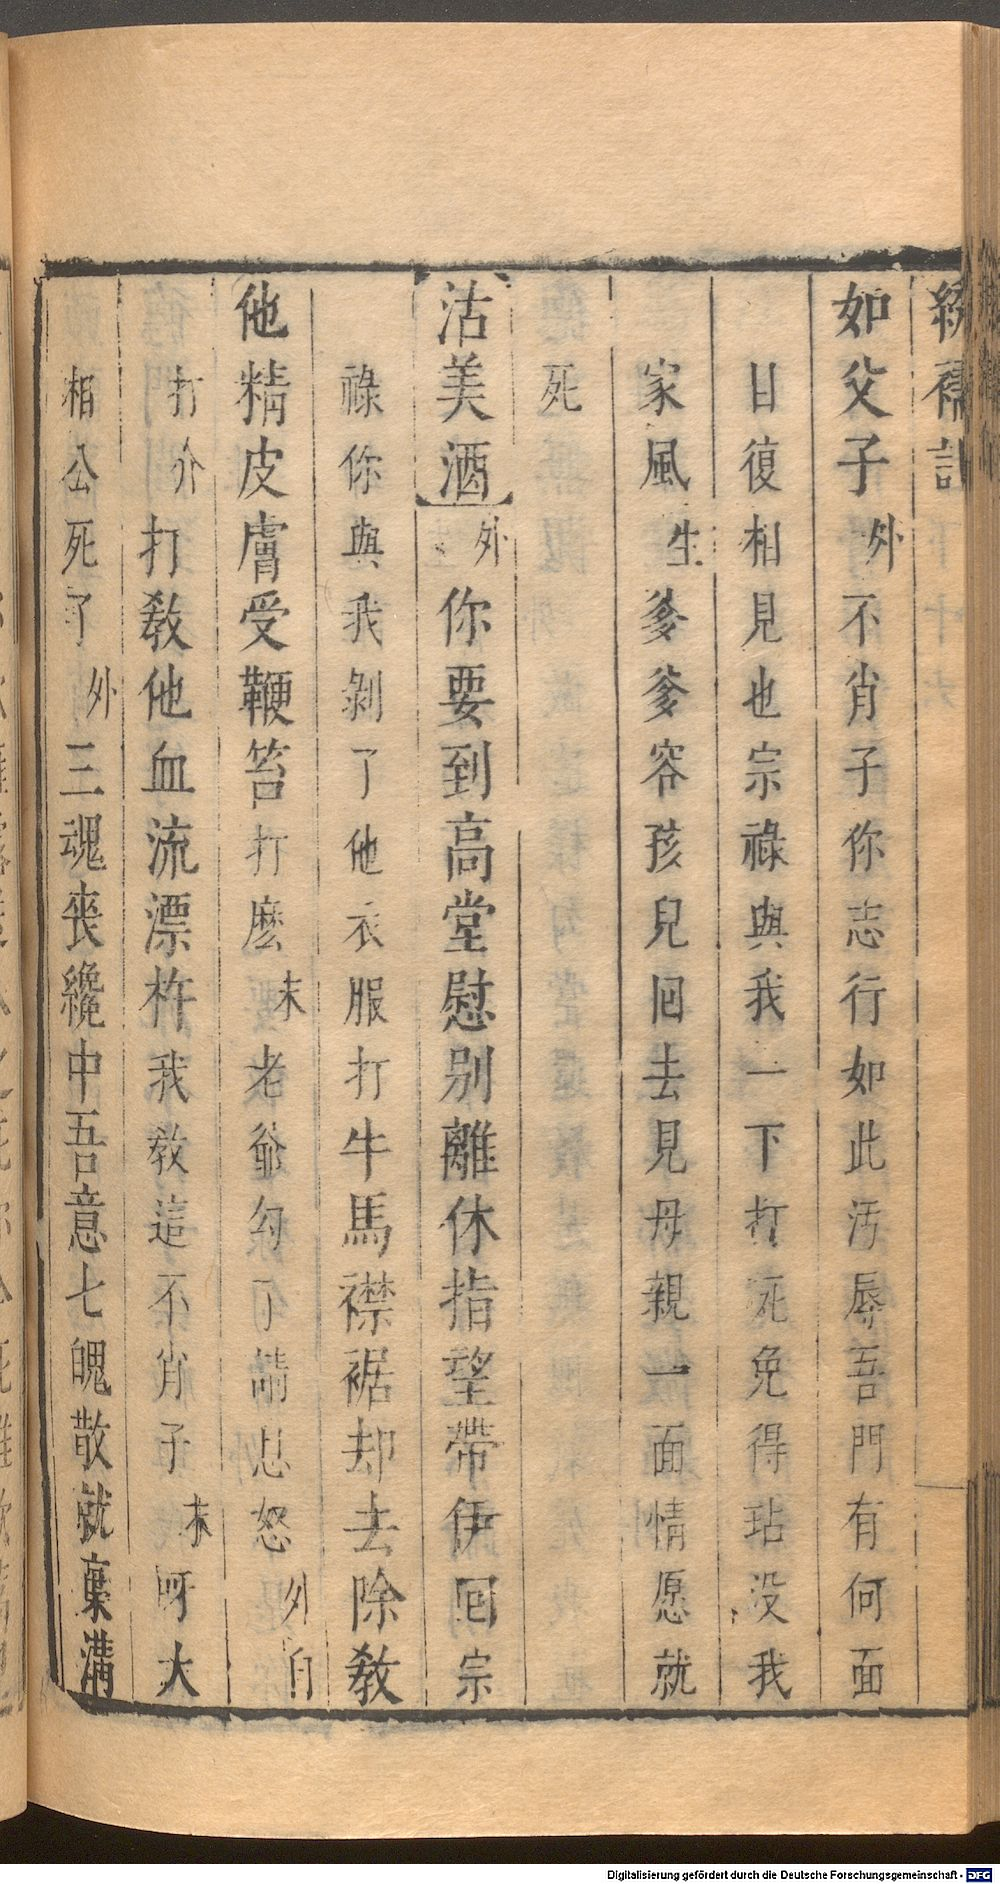 繡襦記
如父子外不肖子你志行如此汚辱吾門有何面
目復相見也宗祿與我一下打死免得玷没我
家風生爹爹容孩兒回去見母親一面情愿就
死
沽美酒外你要到高堂慰别離休指望帶伊回宗
祿你與我剝了他衣服打牛馬襟裾却去除教
他精皮膚受鞭笞打麽末老爺勾了請息怒外自
打介打教他血流漂杵我教這不肖子末呵大
相公死了外三魂喪纔中吾意七魄散就棄溝
Digitalisierung gefördert durch die Deutsche Forschungsgemeinschaft - DFG